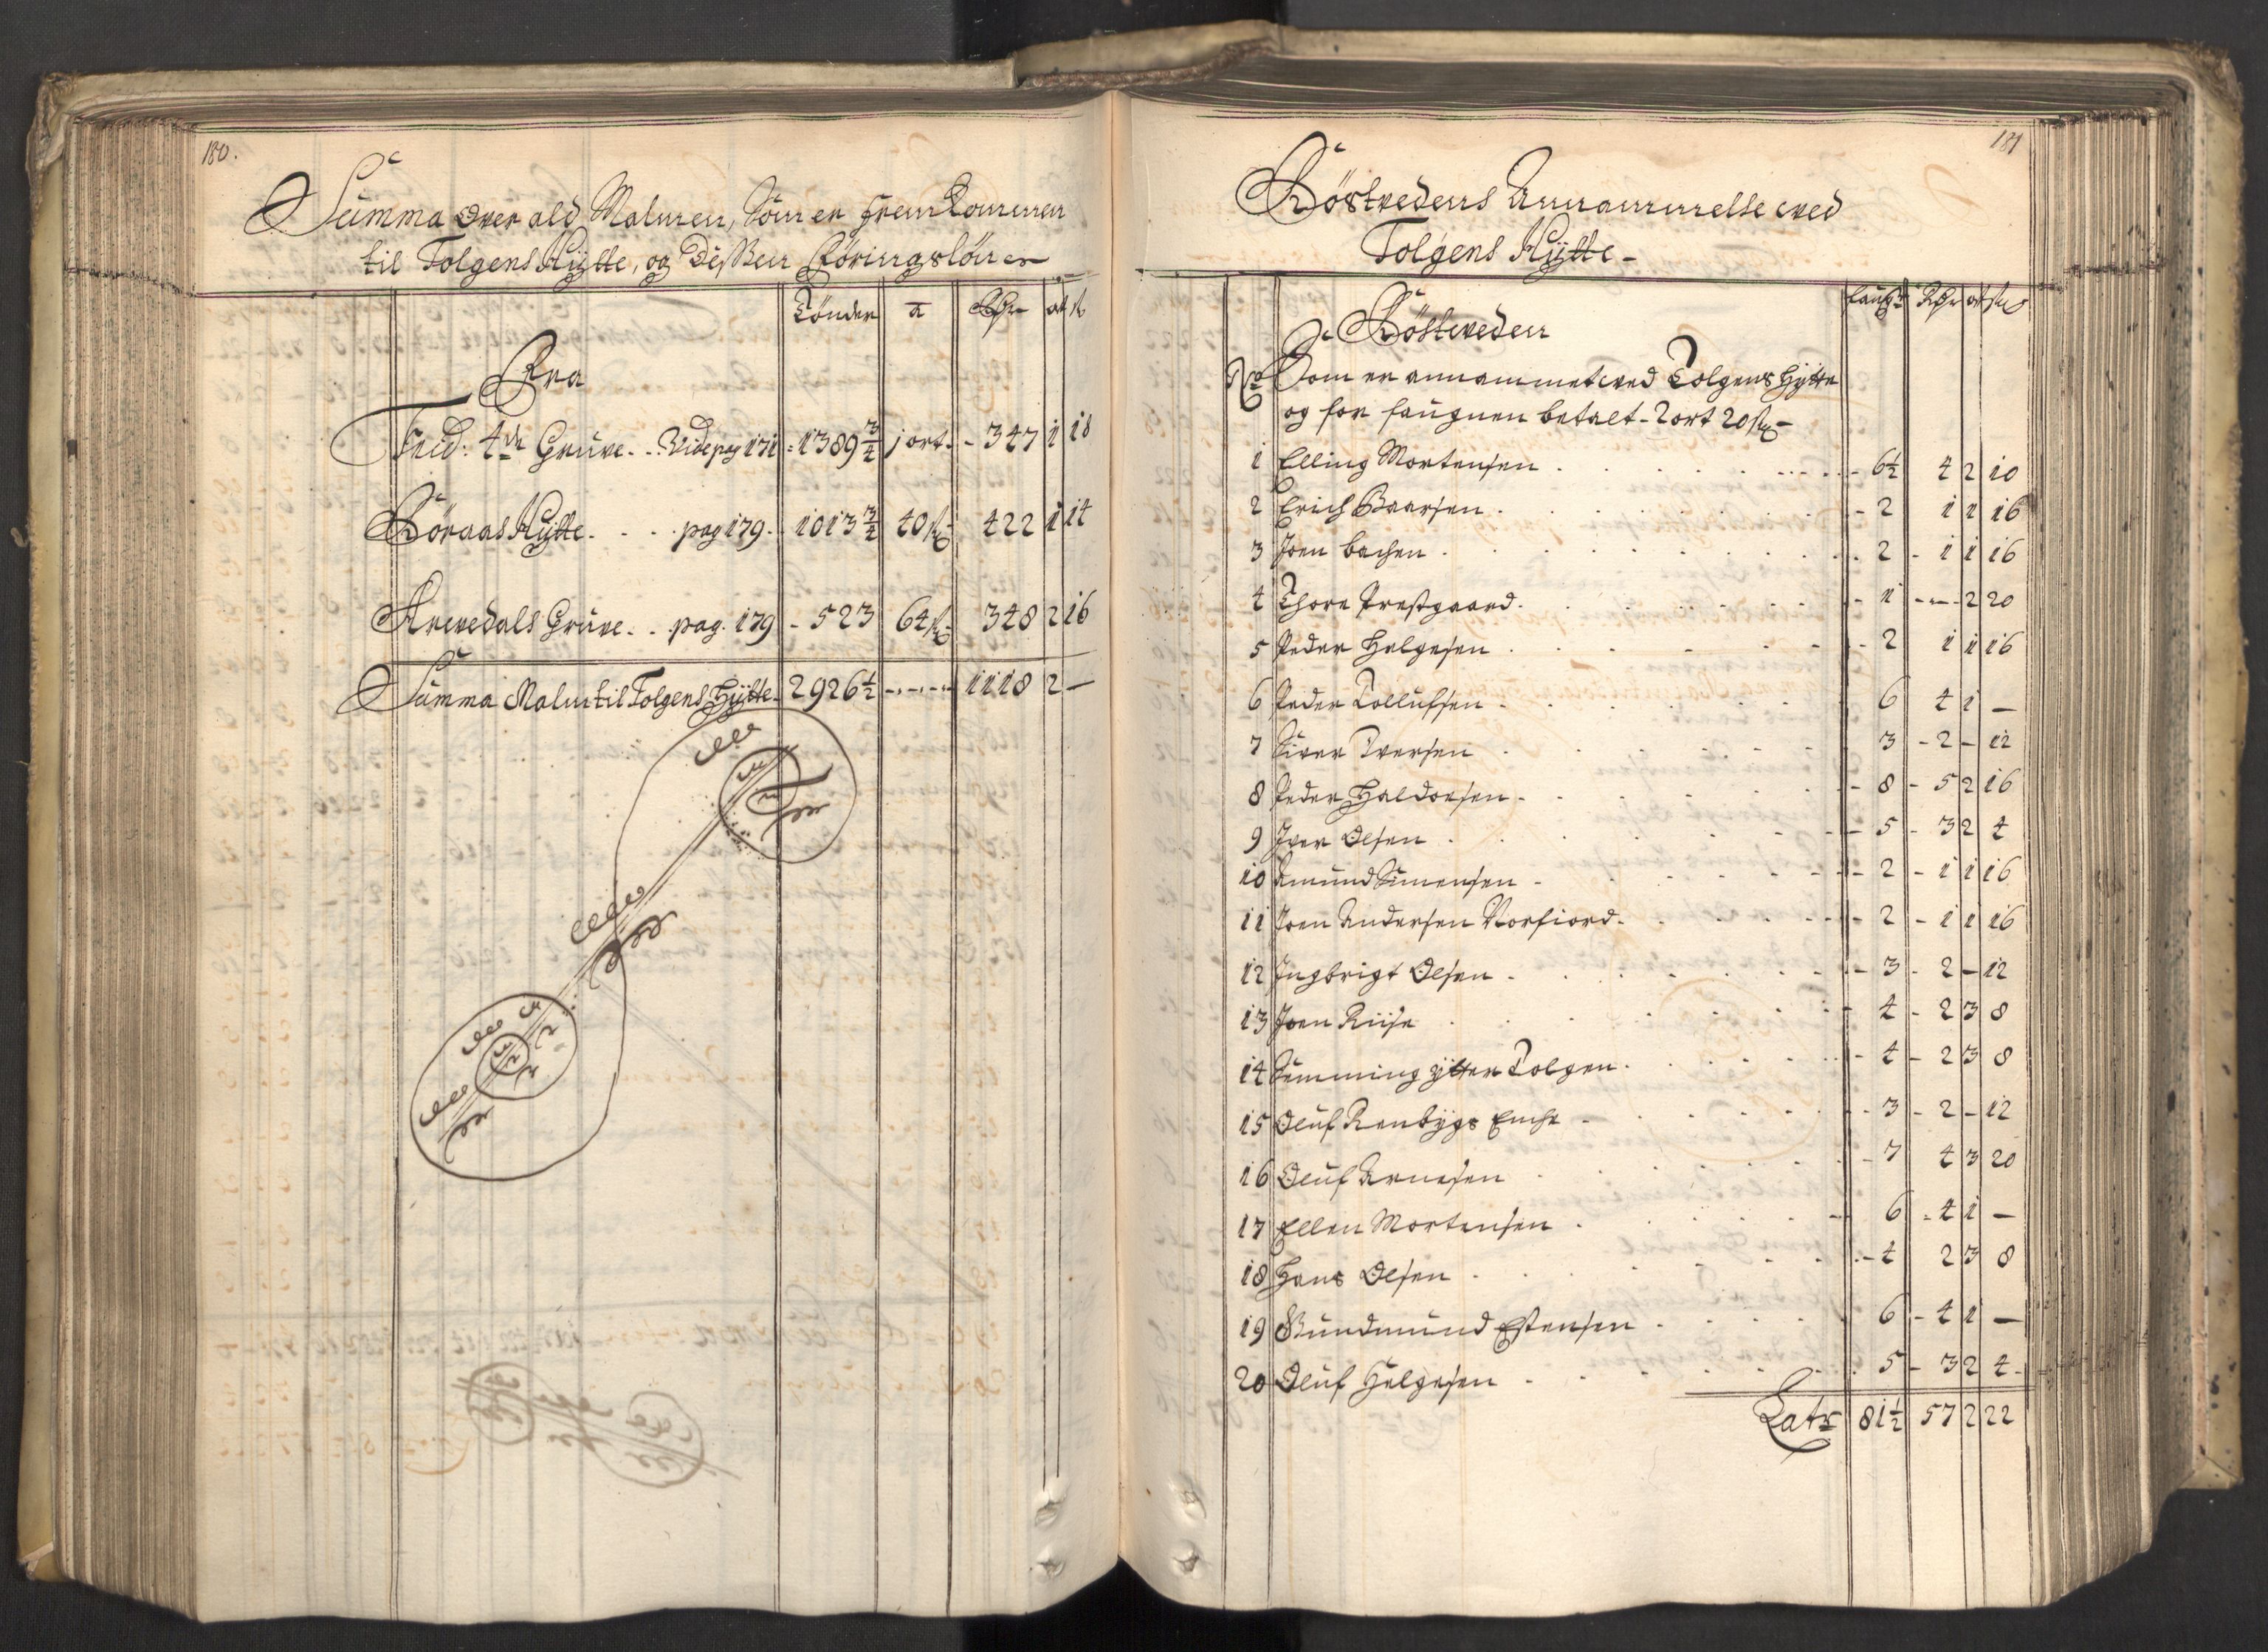 180.
Summa over ald Malmen, Som er fremkommen
til Tolgens Hÿtte, og Dessen Köringslön
Tönder a Rdr ort s
Fra
Frid: 4de Grube. .. Vide pag 171 - 1389 3/4 1 ort. - 347 1 18
Röraas Hÿtte. . . . pag 179. 1013 3/4 40 s - 422 1 14
Arvedals Grube. . . pag. 179 - 523 64 s - 348 2 16
Summa Malm til Tolgens Hÿtte - 2926 1/2 - . - . - 1118 2 -
181
Röstvedens Annammelse ved
Tolgens Hÿtte -
faugr Rdr ort s
Röstveden
No Som er annammet ved Tolgens Hÿtte
og for faugnen betalt - 2 ort 20 s -
1 Elling Mortensen . . . . 6 1/2 4 2 10
2 Erich Baarsen . . . . 2 1 1 16
3 Joen bachen . . . . 2 - 1 1 16
4 Thore Prestgaard . . . . 1 - - 2 20
5 Peder Helgesen . . . . 2 1 1 16
6 Peder Tollufsen . . . . 6 4 1 -
7 Siver Iversen . . . . 3 - 2 - 12
8 Peder Haldorsen . . . . 8 - 5 2 16
9 Iver Olsen . . . . 5 - 3 2 4
10 Amund Simensen . . . . 2 - 1 1 16
11 Joen Andersen Vorfiord . . . . 2 - 1 1 16
12 Ingbrigt Olsen . . . . 3 - 2 - 12
13 Joen Riise . . . . 4 - 2 3 8
14 Semming ÿtter Tolgen . . . . 4 - 2 3 8
15 Oluf Renbÿgs Enche . . . . 3 - 2 - 12
16 Oluf Arnesen . . . . 7 4 3 20
17 Ellen Mortensen . . . . 6 - 4 1 -
18 Hans Olsen . . . . 4 2 3 8
19 Gundmund Estensen . . . . 6 - 4 1 -
20 Oluf Helgesen . . . . 5 - 3 2 4
Latr 81 1/2 57 2 22